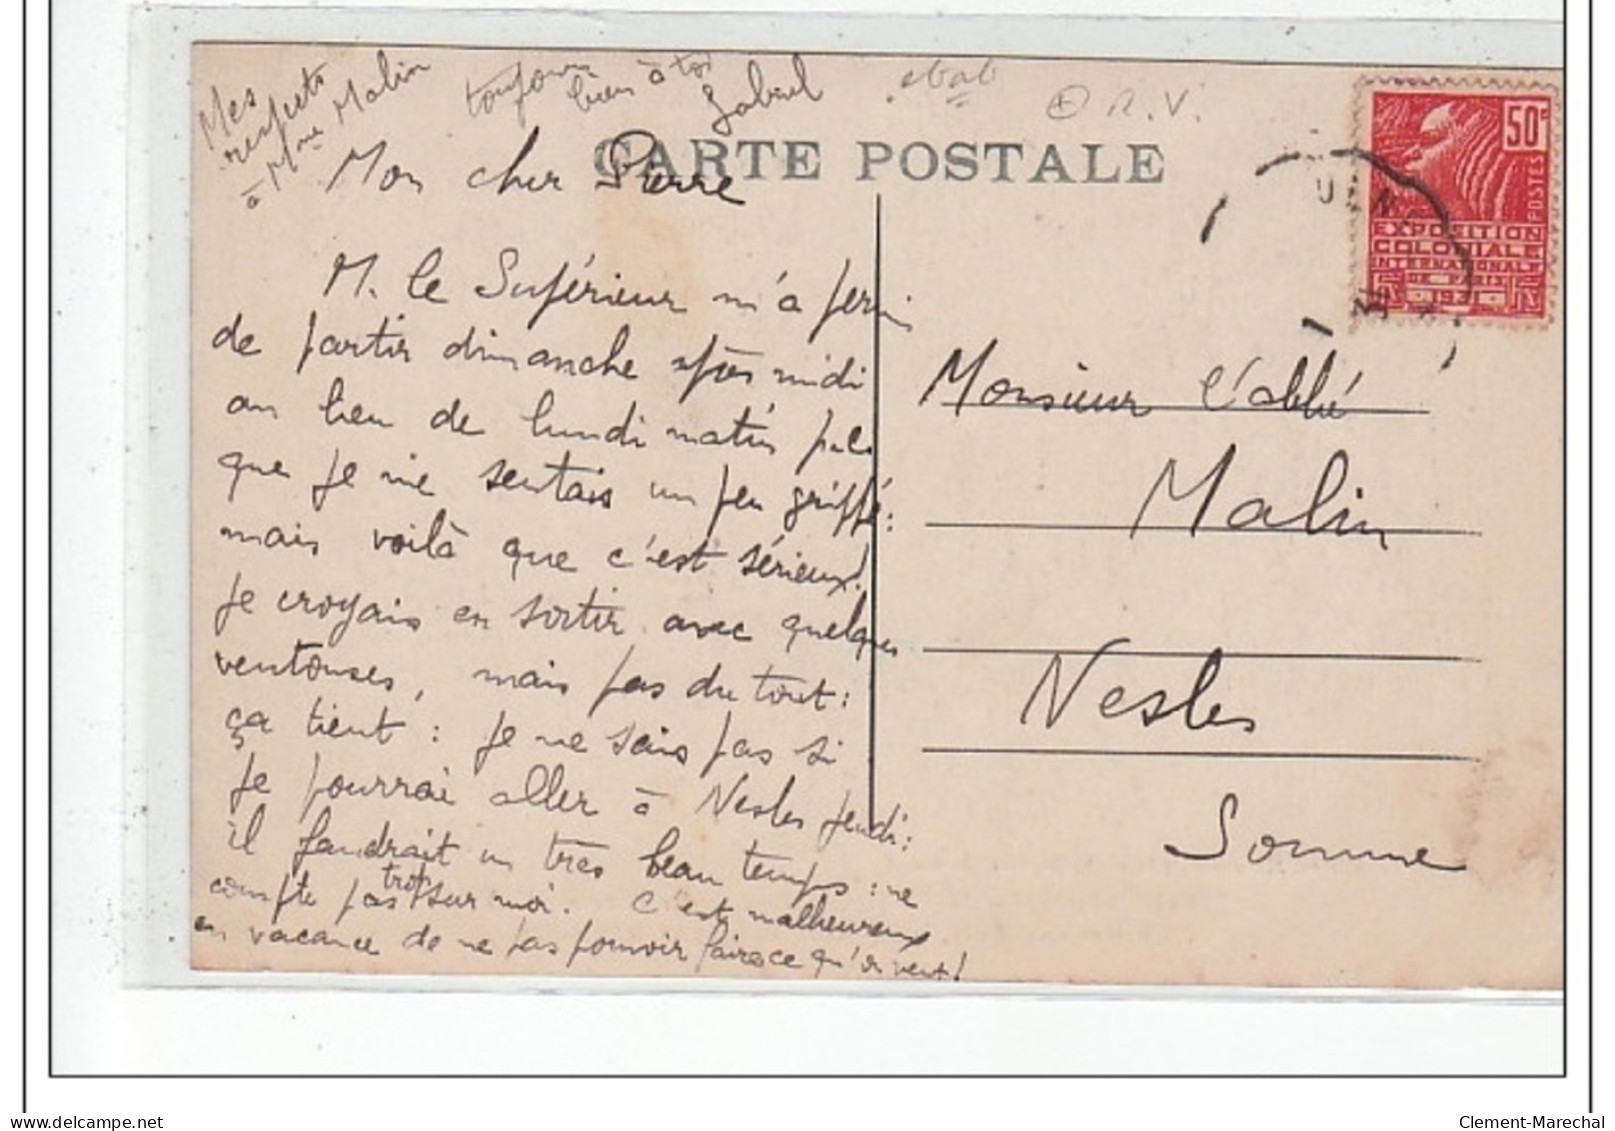 Mes
respects
à Mme Malin
toujours
bien à toi
Gabriel
R. V.
CARTE POSTALE
Mon cher Pierre
M. le Supérieur m'a permis
de partir dimanche après midi
au lieu de lundi matin parce
que je me sentais un peu grippé :
mais voilà que c'est sérieux !
Je croyais en sortir avec quelques
ventouses, mais pas du tout :
ça tient : je ne sais pas si
je pourrai aller à Nesles jeudi :
il faudrait un très beau temps : ne
compte pas trop sur moi. C'est malheureux
en vacance de ne pas pouvoir faire ce qu'on veut !
50c
POSTES
EXPOSITION
COLONIALE
INTERNATIONALE
PARIS
1931
RF
31
Monsieur l'abbé
Malin
Nesles
Somme
Clement-Marechal